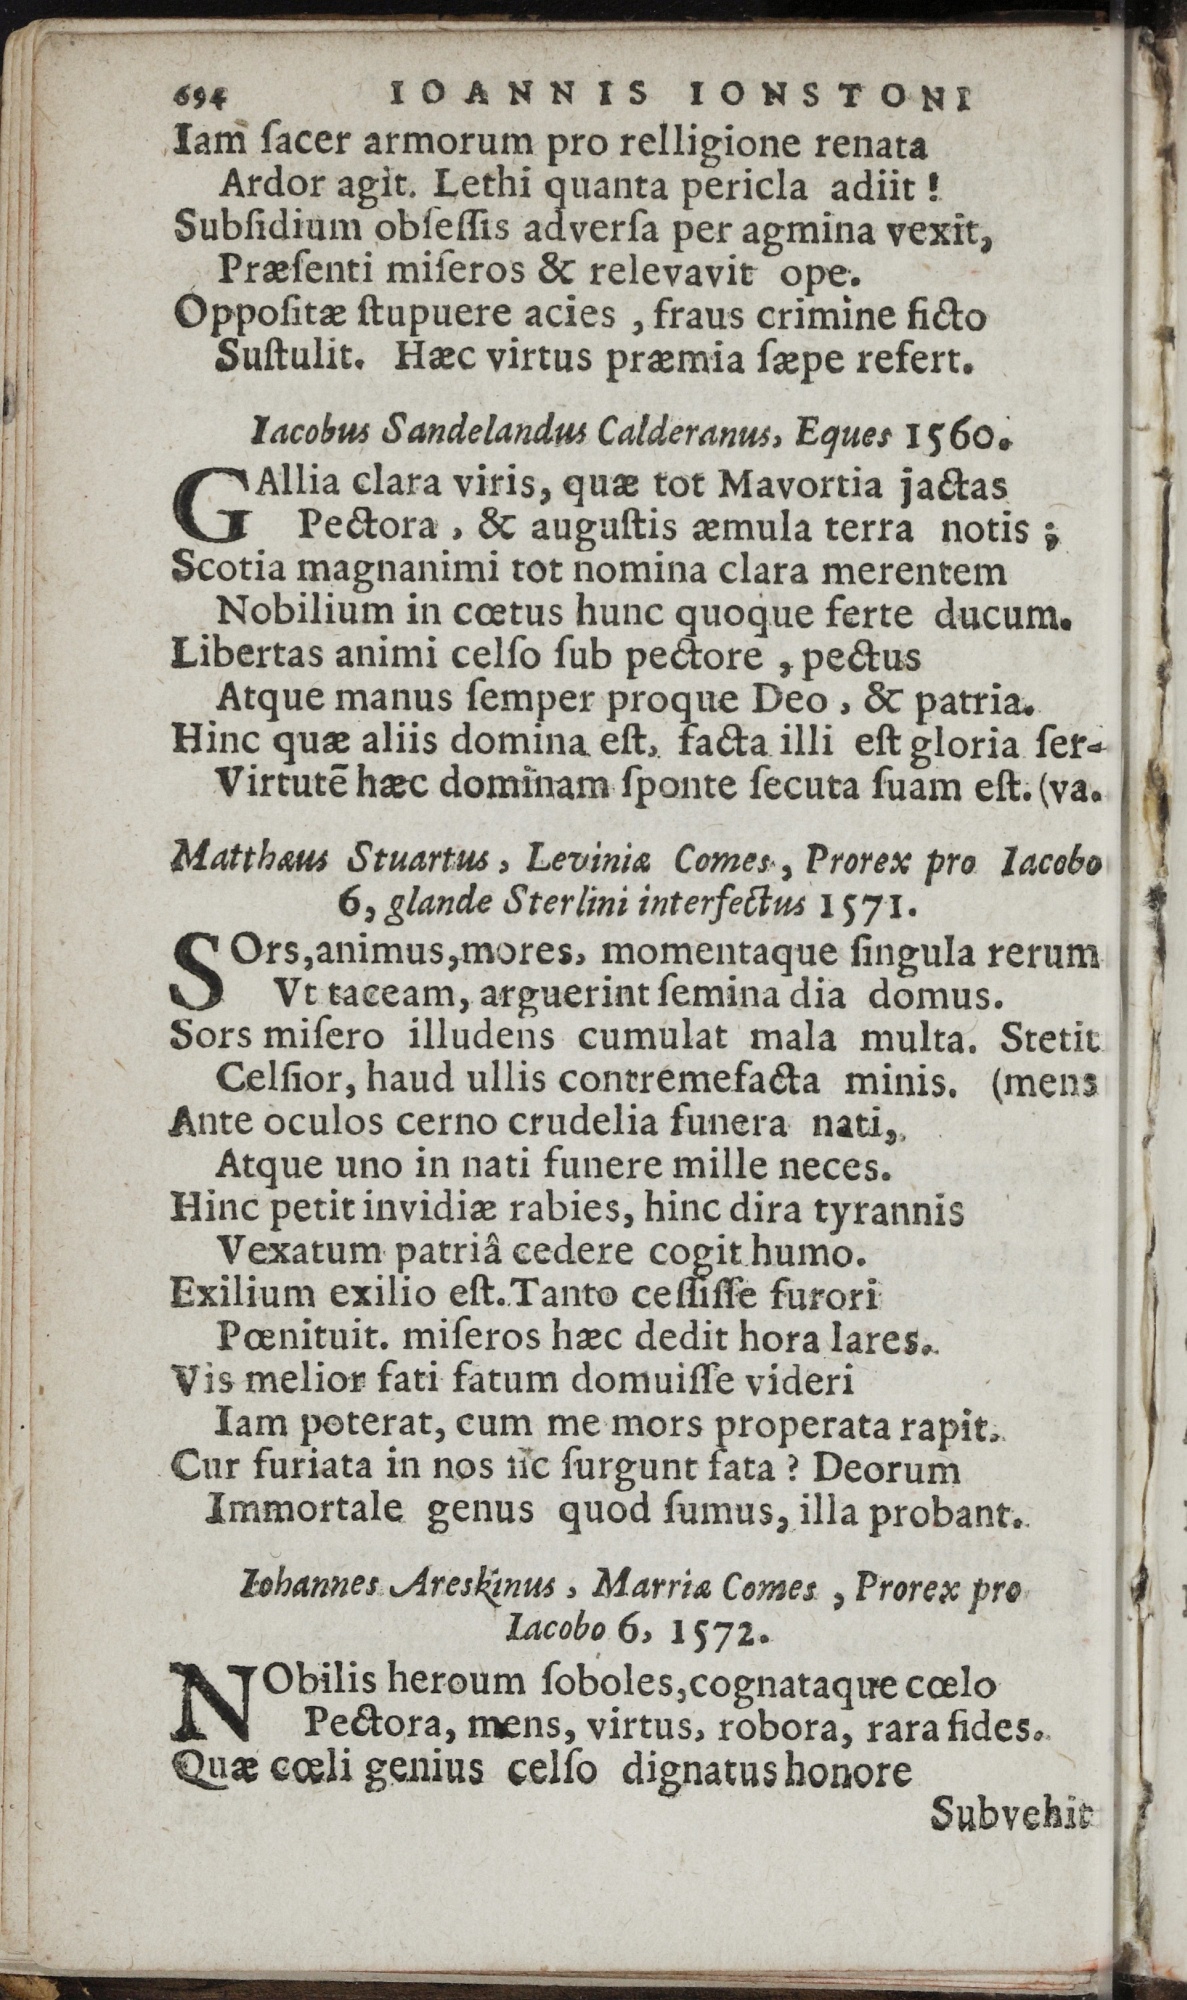 694 IOANNIS IONSTONI
Iam ſacer armorum pro relligione renata
Ardor agit. Lethi quanta pericla adiit !
Subſidium obſeſſis adverſa per agmina vexit,
Præſenti miſeros & relevavit ope.
Oppoſitæ ſtupuere acies , fraus crimine ficto
Suſtulit. Hæc virtus præmia ſæpe refert.
Iacobus Sandelandus Calderanus, Eques 1560.
GAllia clara viris, quæ tot Mavortia jactas
Pectora , & auguſtis æmula terra notis ;
Scotia magnanimi tot nomina clara merentem
Nobilium in cœtus hunc quoque ferte ducum.
Libertas animi celſo ſub pectore , pectus
Atque manus ſemper proque Deo , & patria.
Hinc quæ aliis domina eſt, facta illi eſt gloria ſer-
Virtutẽ hæc dominam ſponte ſecuta ſuam eſt. (va.
Matthæus Stuartus , Leviniæ Comes , Prorex pro Iacobo
6, glande Sterlini interfectus 1571.
SOrs,animus,mores, momentaque ſingula rerum
Vt taceam, arguerint ſemina dia domus.
Sors miſero illudens cumulat mala multa. Stetit
Celſior, haud ullis contremefacta minis. (mens
Ante oculos cerno crudelia funera nati,
Atque uno in nati funere mille neces.
Hinc petit invidiæ rabies, hinc dira tyrannis
Vexatum patriâ cedere cogit humo.
Exilium exilio eſt. Tanto ceſſiſſe furori
Pœnituit. miſeros hæc dedit hora lares.
Vis melior fati fatum domuiſſe videri
Iam poterat, cum me mors properata rapit.
Cur furiata in nos ſic ſurgunt fata ? Deorum
Immortale genus quod ſumus, illa probant.
Iohannes Areskinus , Marriæ Comes , Prorex pro
Iacobo 6, 1572.
NObilis heroum ſoboles,cognataque cœlo
Pectora, mens, virtus, robora, rara fides.
Quæ cœli genius celſo dignatus honore
Subvehit